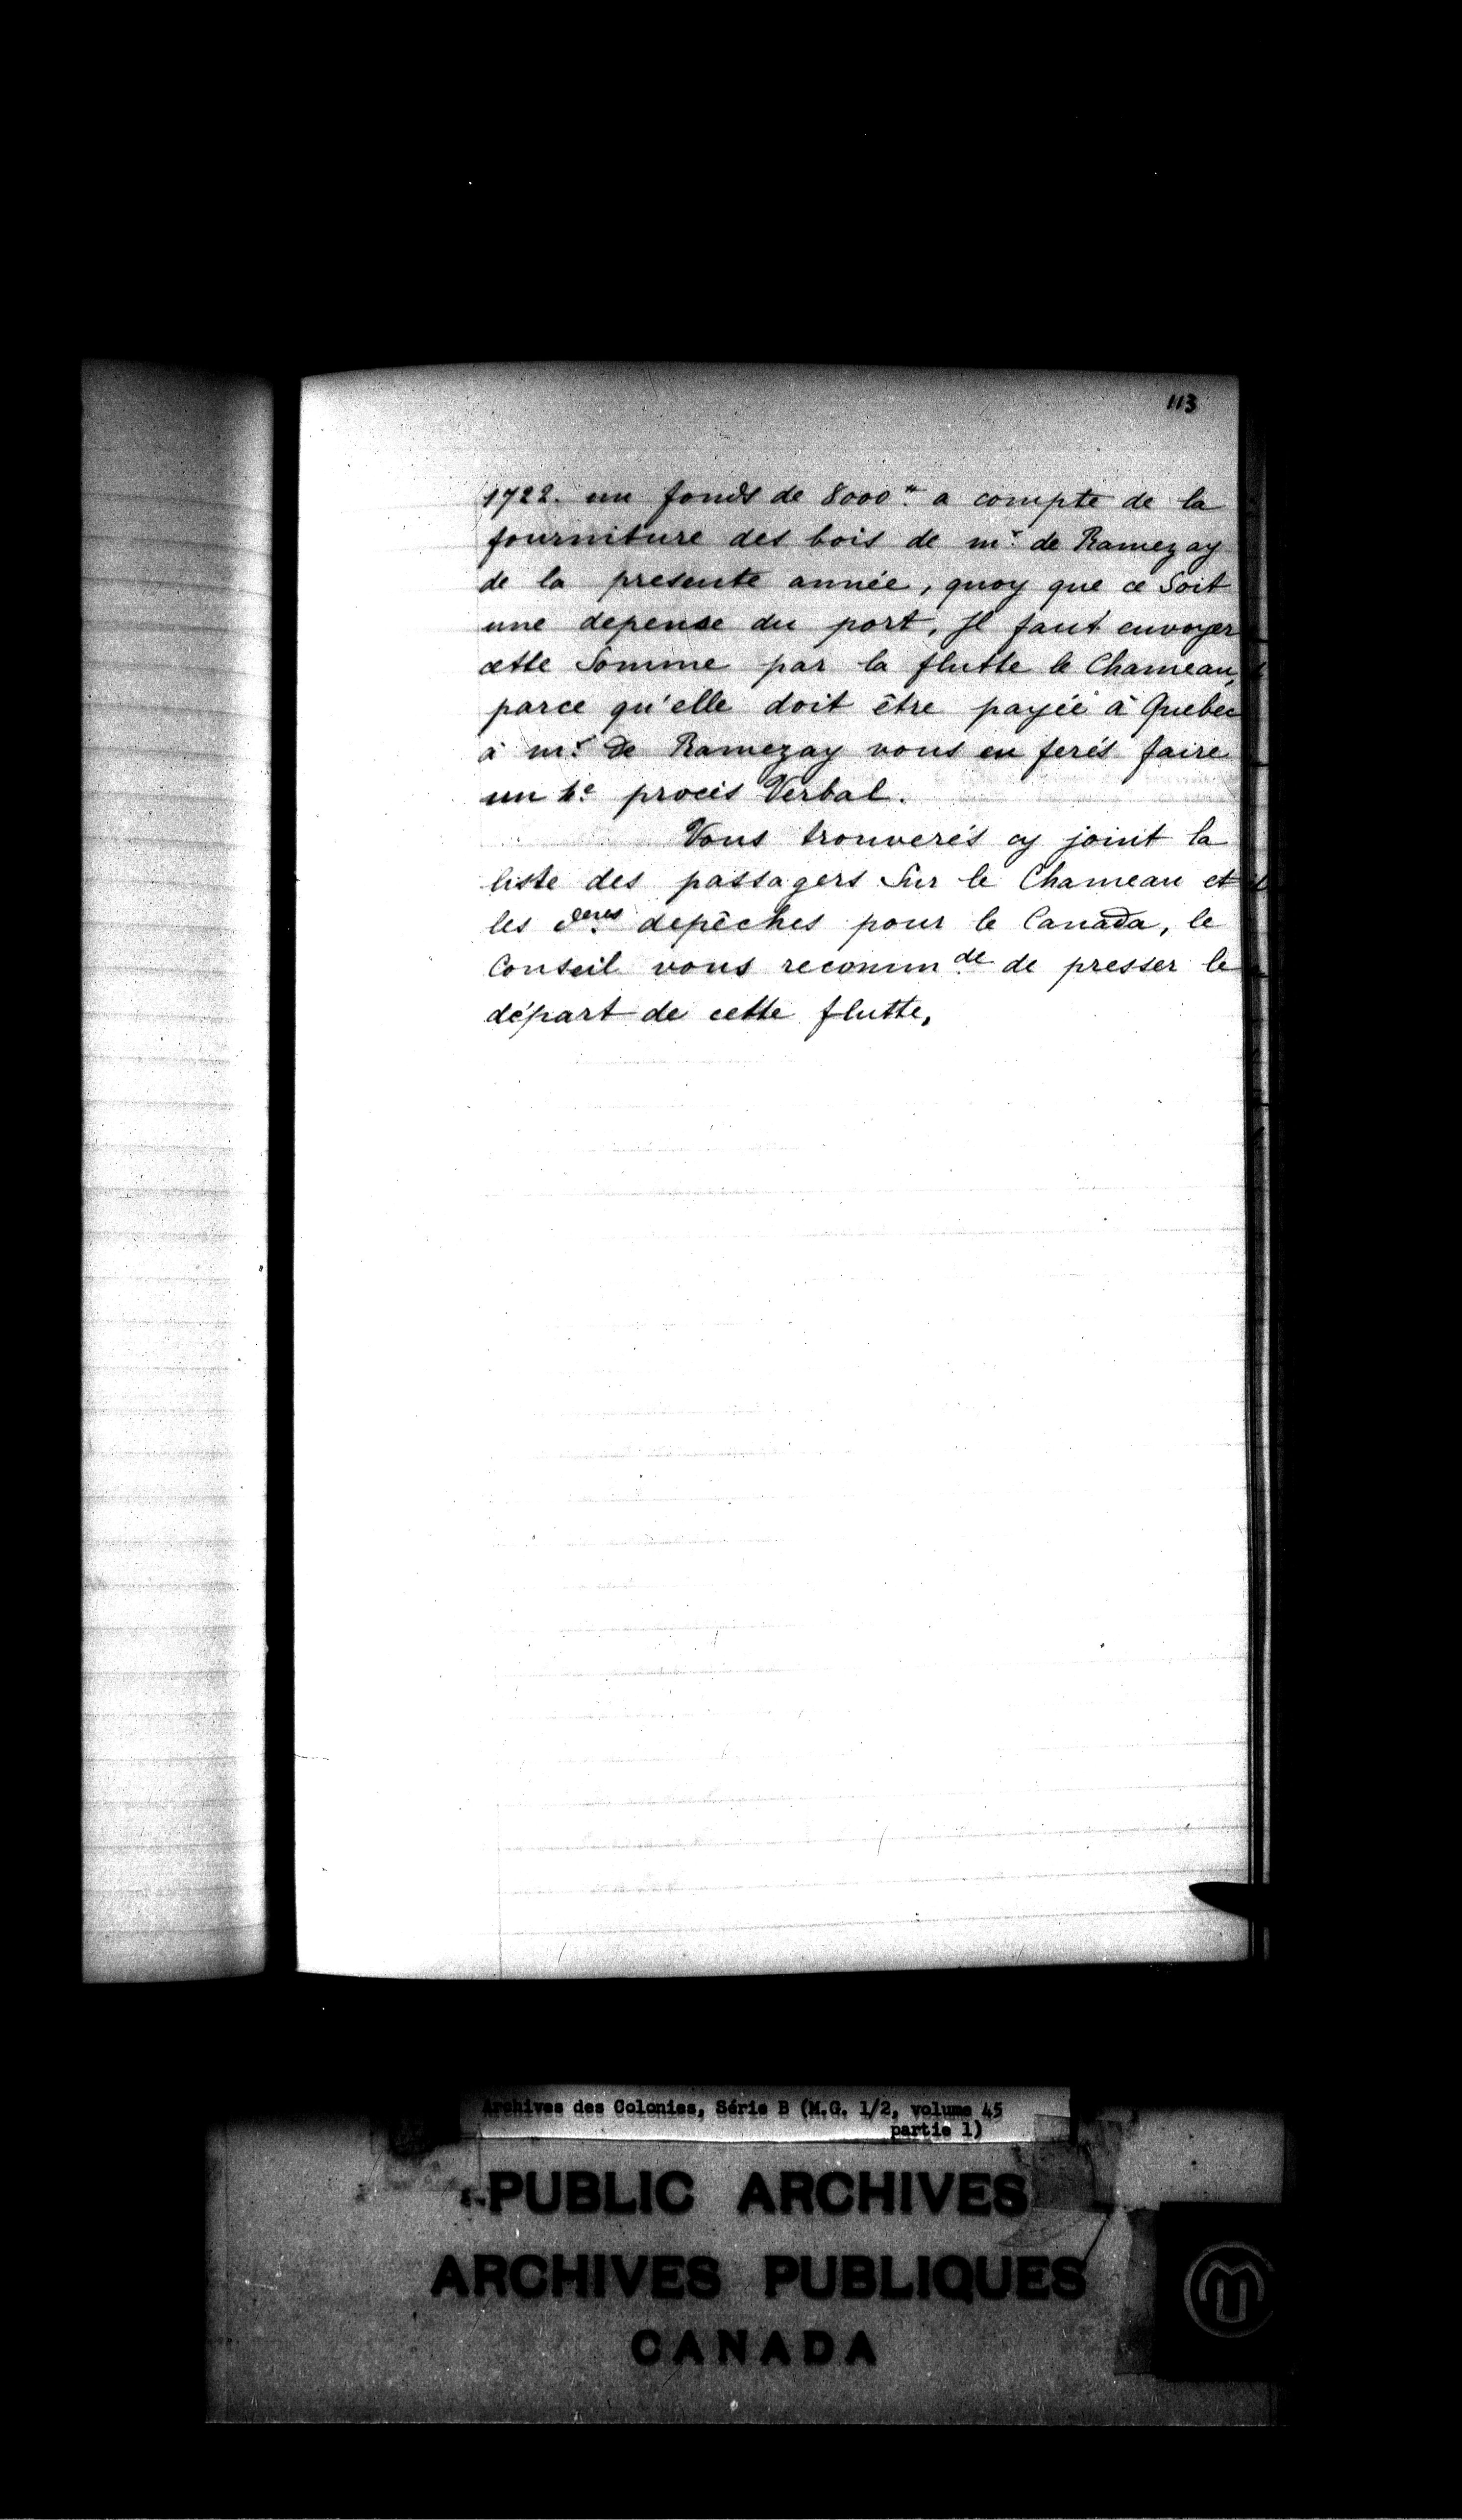 113
1722. un fonds de 8000ᵗᵗ a compte de la
fourniture des bois de mʳ de Ramezay
de la presente année, quoy que ce Soit
une depense du port, Il faut envoyer
cette Somme par la flutte le Chameau,
parce qu'elle doit être payée à Quebec
à mʳ de Ramezay vous en ferés faire
un procès Verbal.
Vous trouverés cy joint la
liste des passagers Sur le Chameau et
les dᵉʳᵉˢ depêches pour le Canada, le
Conseil vous recommᵈᵉ de presser le
départ de cette flutte,
Archives des Colonies, Série B (M.G. 1/2, volume 45
partie 1)
PUBLIC ARCHIVES
ARCHIVES PUBLIQUES
CANADA